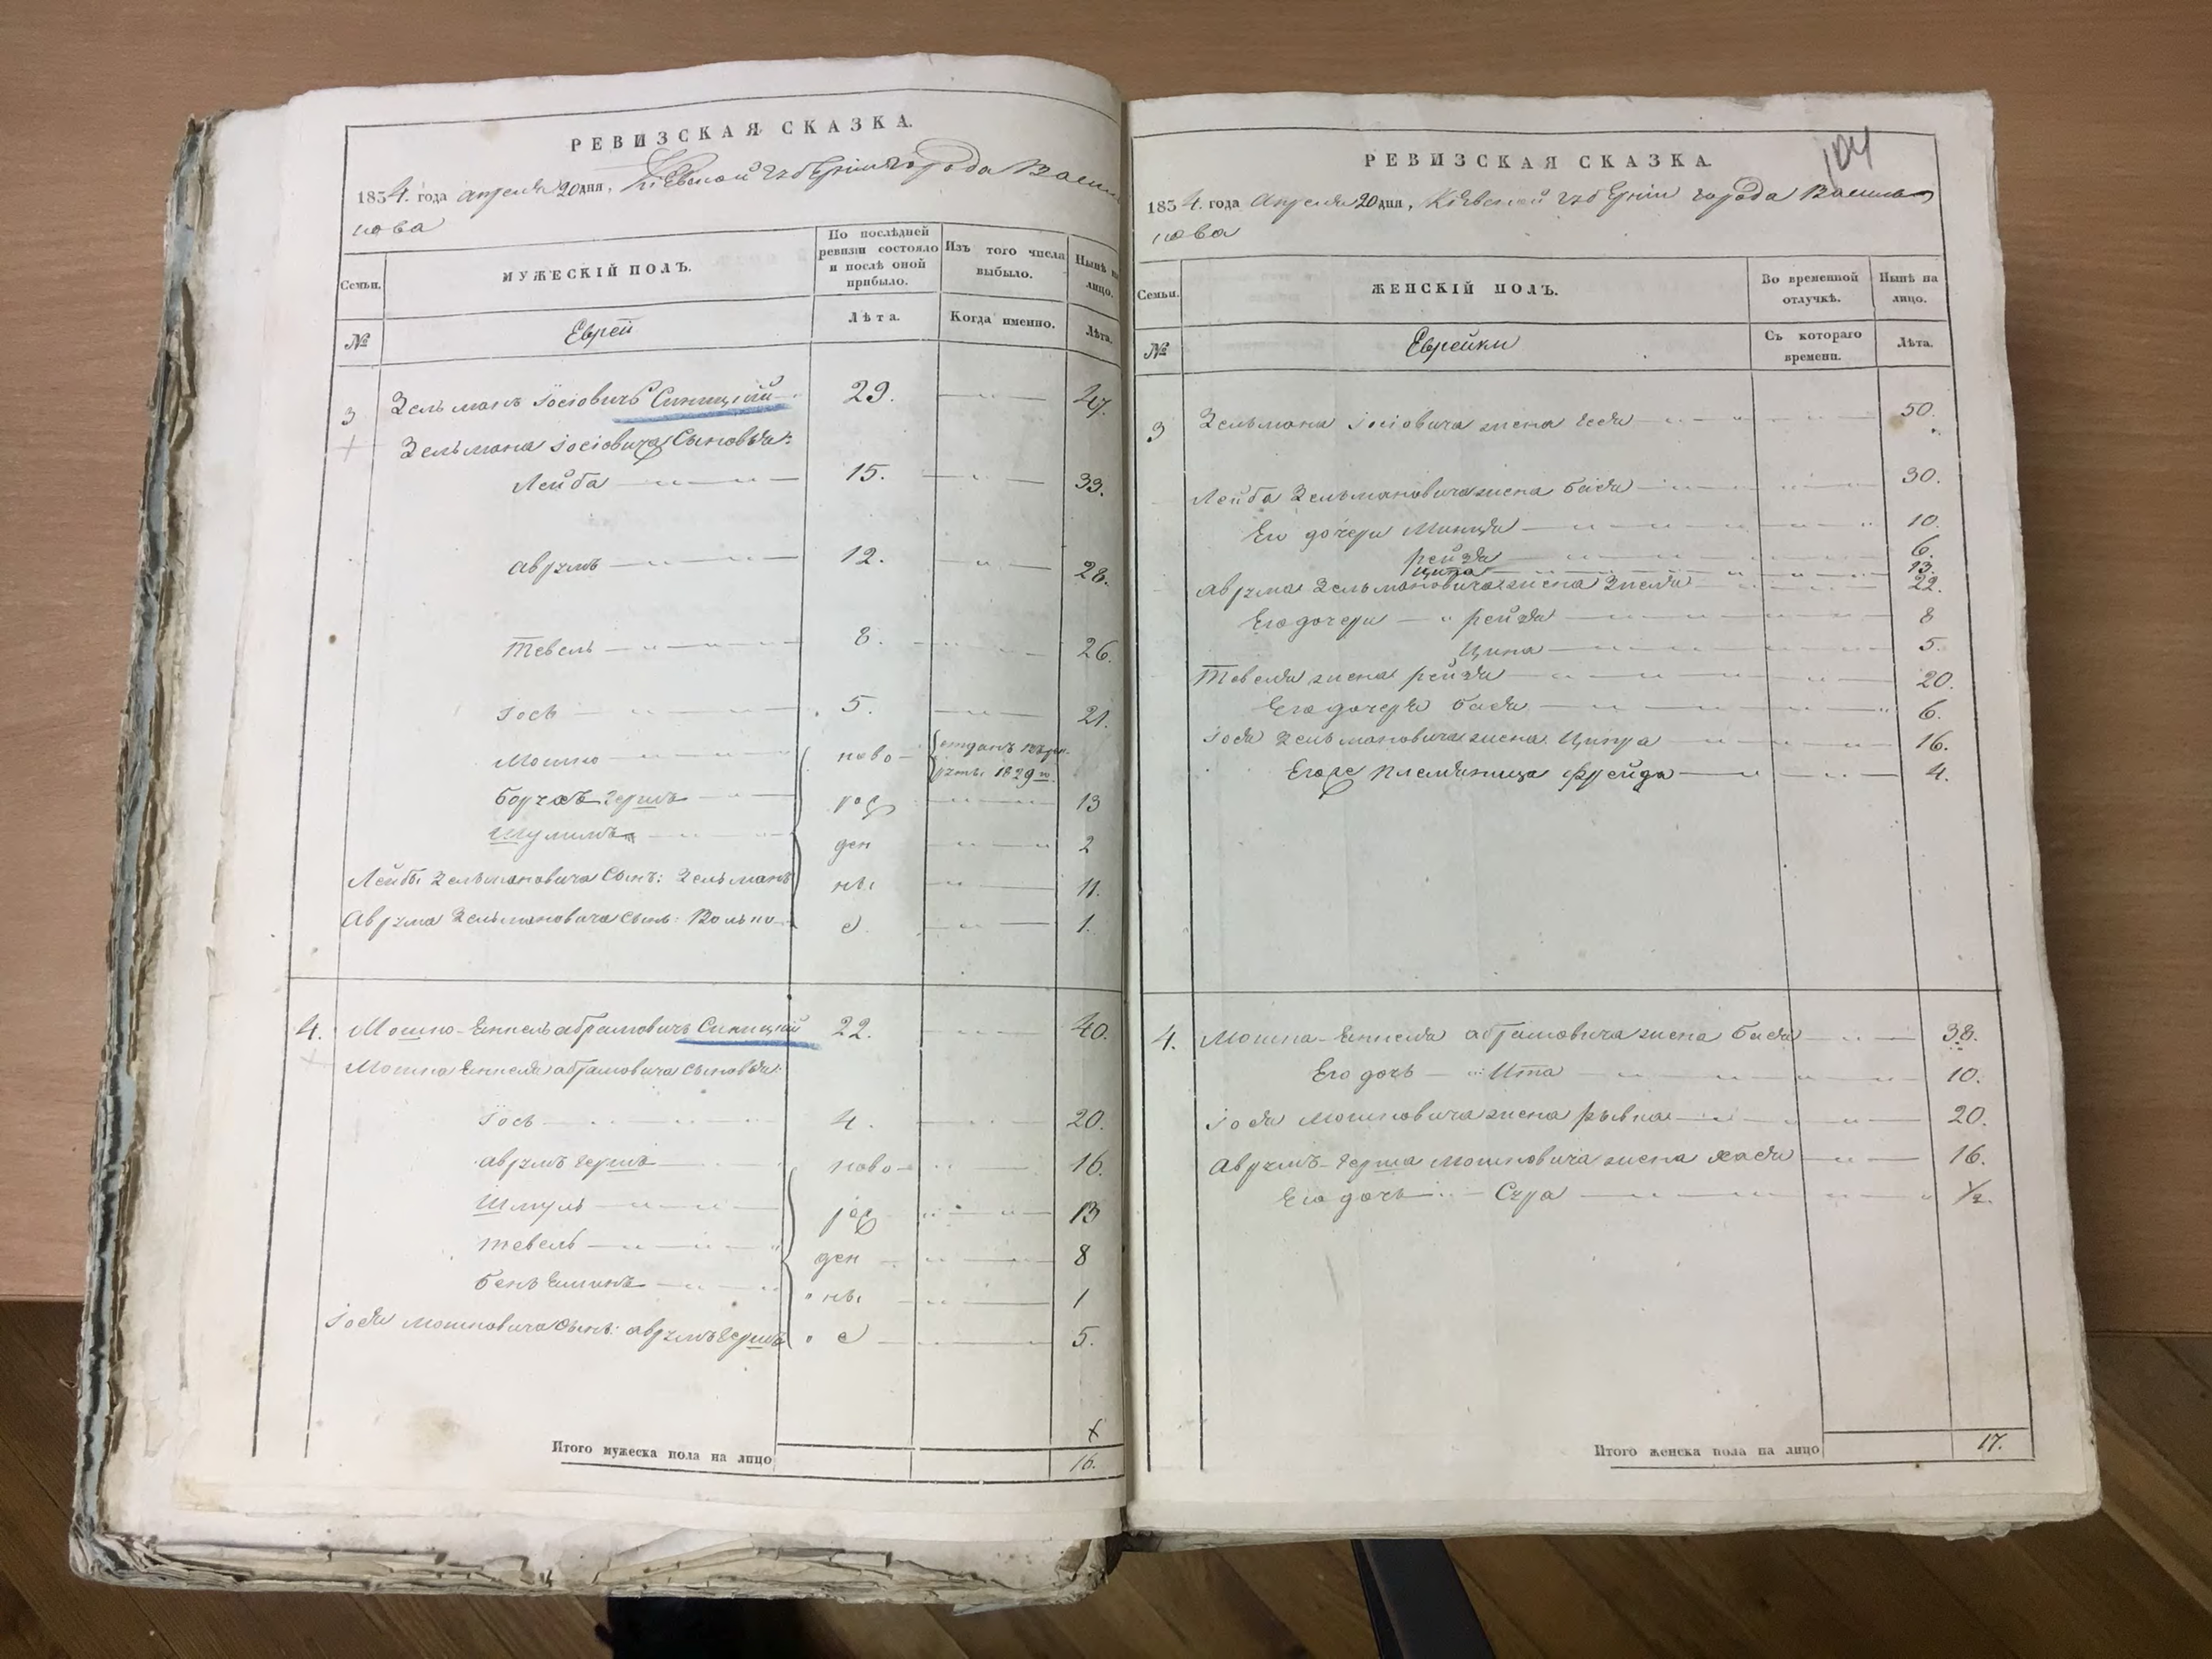 РЕВИЗСКАЯ СКАЗКА.
1834. года апреля 20 дня, Кіевской губерніи города Васил
кова
Семьи.
МУЖЕСКІЙ ПОЛЪ.
По послѣдней ревизіи состояло и послѣ оной прибыло.
Изъ того числа выбыло.
Нынѣ на лицо.
№
Еврей
Лѣта.
Когда именно.
Лѣта.
3 Зельманъ Іосіовичъ Синицкій 29. 47.
Зельмана Іосіовича Сыновья:
Лейба 15. 33.
Аврумъ 12. 28.
Тевель 8. 26.
Іось 5. 21.
Мошко ново отданъ рекруты 1829 го.
Борухъ Гершъ рож 13
Шулимъ ден 2
Лейбы Зельмановича Сынъ: Зельманъ ны 11.
Аврума Зельмановича сынъ: Волько е 1.
4. Мошко-Енкель абрамовичъ Синицкій 22. 40.
Мошка Енкеля абрамовича сыновья:
Іось 4. 20.
аврумъ гершъ ново 16.
Шмуль рож 13
Тевель ден 8
Беньеминъ ны 1
Іося Мошковича Сынъ: аврумъ гершъ е 5.
Итого мужеска пола на лицо 16.
104
РЕВИЗСКАЯ СКАЗКА.
1834. года Апреля 20 дня, Кіевской губерніи города Василь
кова
Семьи.
ЖЕНСКІЙ ПОЛЪ.
Во временной отлучкѣ.
Нынѣ на лицо.
№
Еврейки
Съ котораго времени.
Лѣта.
3 Зельмана Іосіовича жена 50.
Лейба Зельмановича жена Бася 30.
Его дочери 10.
рейзя 6.
Ципа 13.
Аврума Зельмановича жена Зисля 22.
Его дочери рейзя 8
Ципа 5.
Тевеля жена рейзя 20.
Его дочеря Бася 6.
Іося Зельмановича жена Ципра 16.
Егоже племяница фрейда 4.
4. Мошка-Енкеля абрамовича жена Бася 38.
Его дочь Ита 10.
Іося Мошковича жена рывка 20.
Аврумъ-герша Мошковича жена хася 16.
Его дочь Сура 1/2.
Итого женска пола на лицо 17.